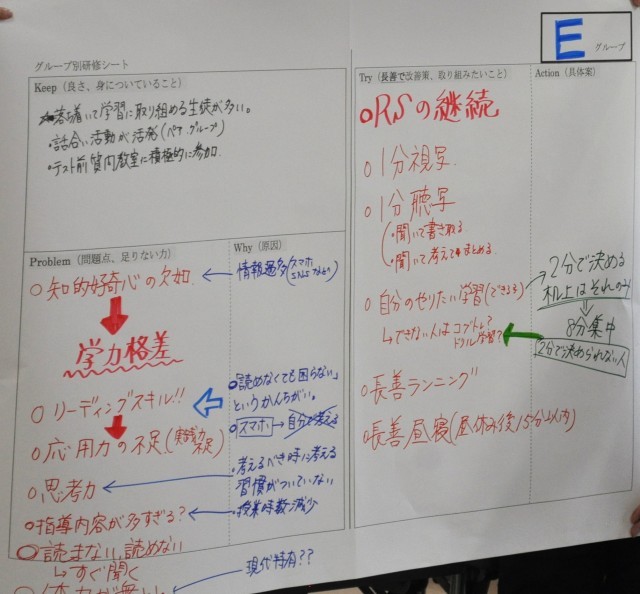 E グループ
グループ別研修シート
Keep（良さ、身についていること）
・落ち着いて学習に取り組める生徒が多い。
・話合い活動が活発（ペア、グループ）
・テスト前質問教室に積極的に参加
Problem（問題点、足りない力）
○知的好奇心の欠如
学力格差
○リーディングスキル!!
○応用力の不足（実践力不足）
○思考力
○指導内容が多すぎる？
○読まない、読めない
↳すぐ聞く
○体力が無い。
Why（原因）
情報過多（スマホ SNSなど）
○「読めなくても困らない」
というかんちがい。
○スマホ→自分で考える
・考えるべき時に考える
習慣がついていない
・授業時数減少
現代特有??
Try（長善で改善策、取り組みたいこと）
○RSの継続
○1分視写
○1分聴写
・聞いて書き取る
・聞いて考えてまとめる
○自分のやりたい学習（できるる）
↳できない人はコグトレ？
ドリル学習？
○長善ランニング
○長善昼寝（昼休み後15分以内）
Action（具体案）
2分で決める
机上はそれのみ
8分集中
2分で決められない人